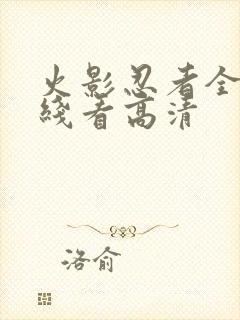 火影忍者全
线看高清
洛俞